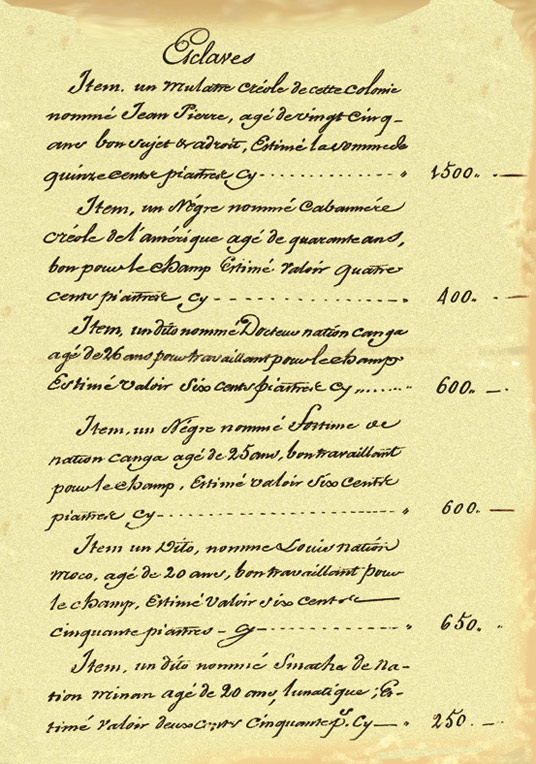 Esclaves
Item. un mulatre créole de cette colonie
nommé Jean Pierre, agé de vingt cinq-
ans bon sujet & adroit, Estimé la somme de
quinze cents piastres Cy - - - - - - - - - " 1500,, " —
Item, un Négre nommé Cabannére
créole de l'amérique agé de quarante ans,
bon pour le champ Estimé valoir quatre
cents piastres Cy - - - - - - - - - - " 400. " —
Item, un dito nommé Docteur nation canga
agé de 26 ans pour travaillant pour le champ
Estimé valoir six cents piastres Cy ,,....... " 600. " —
Item, un Négre nommé de
nation canga agé de 25 ans, bon travaillant
pour le champ, Estimé valoir six cents
piastres Cy - - - - - - - - - - - - " 600.. —
Item un Dito, nommé Louis nation
moco, agé de 20 ans, bon travaillant pour
le champ, Estimé valoir six cents
cinquante piastres - Cy - - - - - - - - " 650.. "
Item, un dito nommé de na-
tion minan agé de 20 ans, lunatique ; Es-
timé valoir deux cents cinquante ps. Cy — " 250. — "